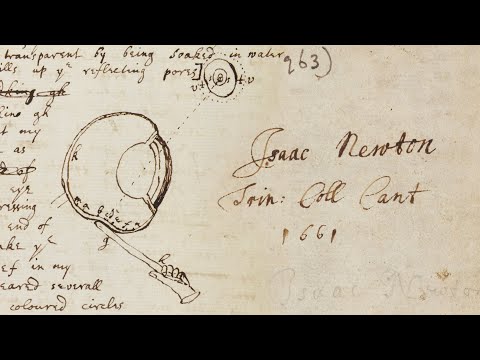 transparent by being soaked in water
ills up yᵉ reflecting pores]
963)
gh
line gh
t my
as
eye
ressing
end of
ake yᵉ
ef in my
eared severall
coloured circles
Isaac Newton
Trin: Coll Cant
1661
Isaac Newton